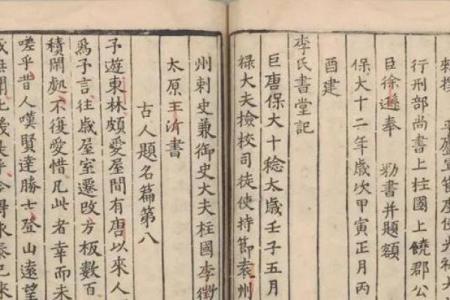 行刑部尚書上柱國上饒郡公
臣徐遜奉　勑書并題額
保大十二年歲次甲寅正月丙
酉建
李氏書堂記
巨唐保大十稔太歲壬子五月
祿大夫檢校司徒使持節袁州
州刺史兼御史大夫柱國李徵
太原王沂書
古人題名篇第八
予遊東林頗愛屋間有唐以來人
爲予言往歲屋室遷改方板數百
積閑處不復愛惜凡此者幸而未
嗟乎昔人嘆賢達勝士登山遠望